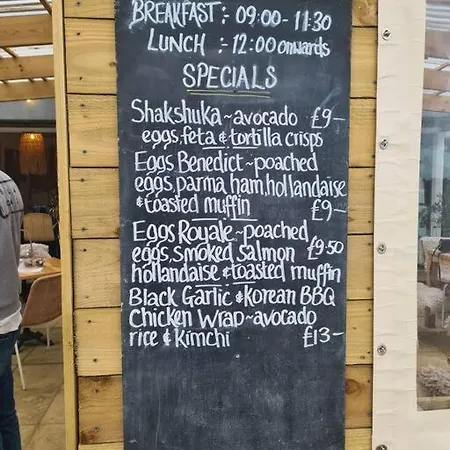 BREAKFAST:- 09:00-11:30
LUNCH :- 12:00 onwards
SPECIALS
Shakshuka ~ avocado £9-
eggs, feta & tortilla crisps
Eggs Benedict ~ poached
eggs, parma ham, hollandaise
& toasted muffin £9-
Eggs Royale ~ poached
eggs, smoked salmon £9.50
hollandaise & toasted muffin
Black Garlic & Korean BBQ
Chicken Wrap ~ avocado
rice & Kimchi £13-